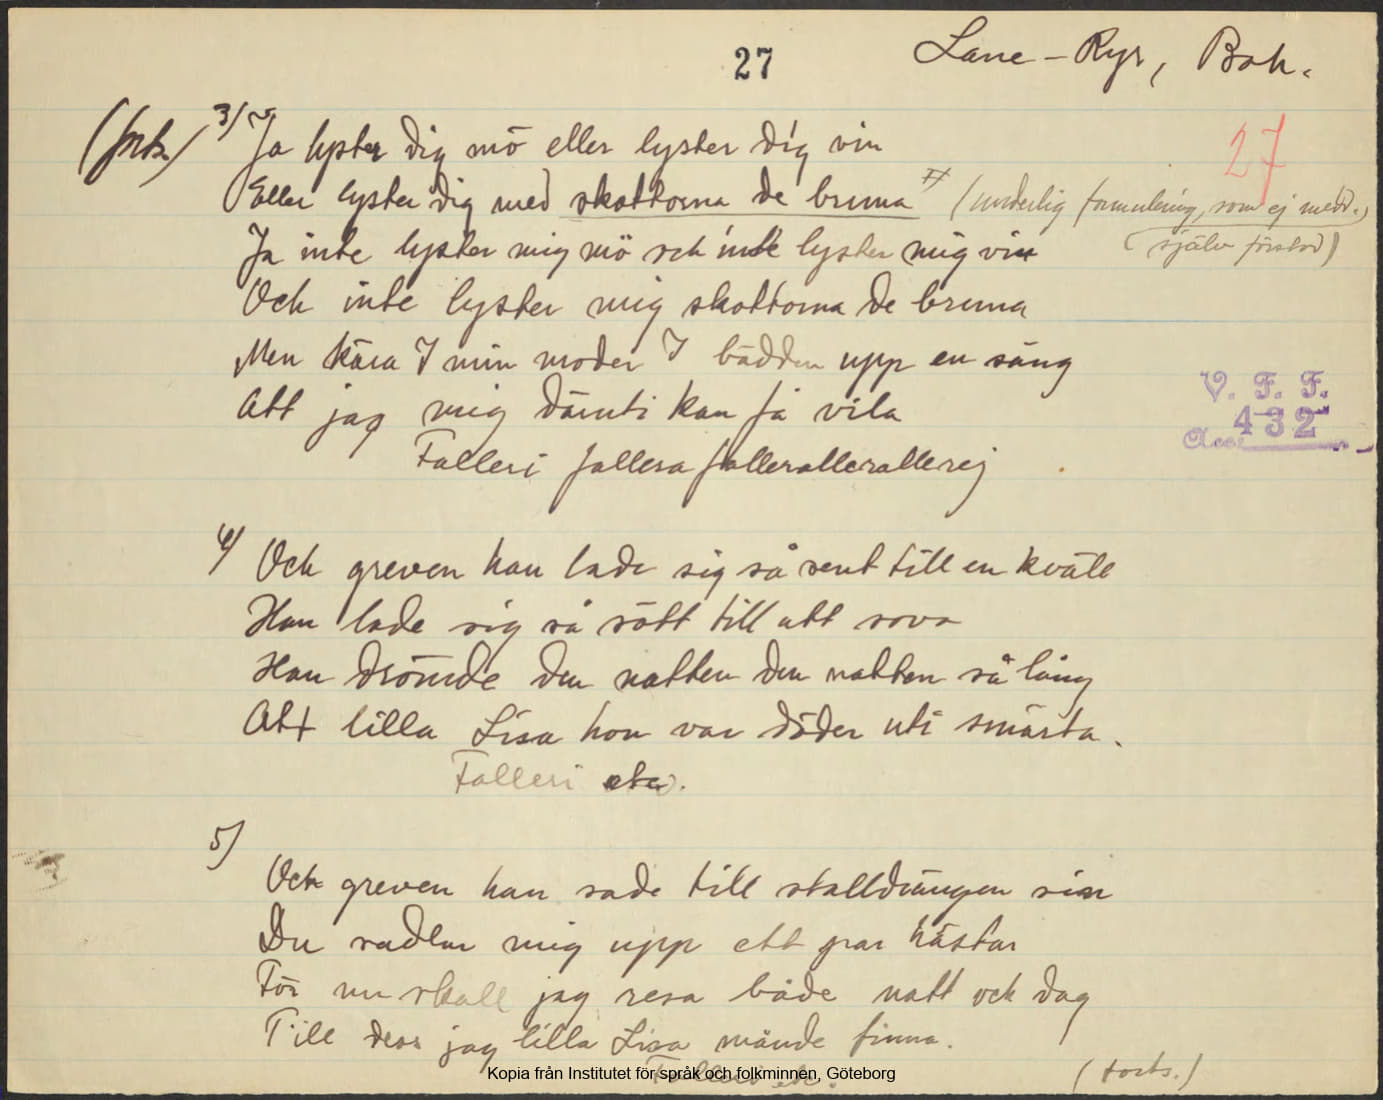 27
Lane-Ryr, Boh.
27
(forts.) 3/ Ja lyster dig mö eller lyster dig vin
Eller lyster dig med skottorna de bruna x) (underlig formulering, som ej medd.
själv förstod)
Ja inte lyster mig mö och inte lyster mig vin
Och inte lyster mig skottorna de bruna
Men kära I min moder I bädden upp en säng
Att jag mig däruti kan få vila
Falleri fallera fallerallerallerej
V. F. F.
Acc. 432
4/ Och greven han lade sig så sent till en kväll
Han lade sig så sött till att sova
Han drömde den natten den natten så lång
Att lilla Lisa hon var döder uti smärta.
Falleri etc.
5/
Och greven han sade till stalldrängen sin
Du sadlar mig upp ett par hästar
För nu skall jag resa både natt och dag
Till dess jag lilla Lisa månde finna.
Falleri etc.
(forts.)
Kopia från Institutet för språk och folkminnen, Göteborg